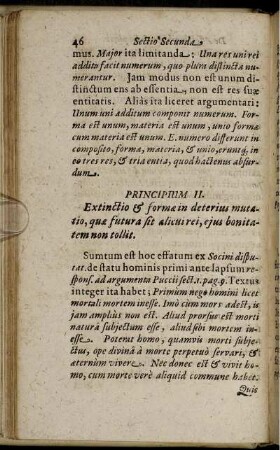 46 Sectio Secunda,
mus. Major ita limitanda: Una res uni rei
addito facit numerum, quo plura distincta nu-
merantur. Jam modus non est unum di-
stinctum ens ab essentia, non est res suæ
entitatis. Aliàs ita liceret argumentari:
Unum uni additum componit numerum. For-
ma est unum, materia est unum, unio formæ
cum materia est unum. E. numero differunt in
composito, forma, materia, & unio, erunt q. in
eo tres res, & tria entia, quod hactenus absur-
dum.
PRINCIPIUM II.
Extinctio & formæ in deterius muta-
tio, quæ futura sit alicui rei, ejus bonita-
tem non tollit.
Sumtum est hoc effatum ex Socini dispu-
tat. de statu hominis primi ante lapsum re-
spons. ad argumenta Puccii sect. 1. pag. 9. Textus
integer ita habet; Primum nego homini lice[t]
mortali mortem inesse. Imò cùm mors adest, is
jam amplius non est. Aliud prorsus est morti
naturâ subjectum esse, aliud sibi mortem in-
esse. Poterat homo, quamvis morti subje-
ctus, ope divinâ à morte perpetuò servari, &
æternùm vivere. Nec donec est & vivit ho-
mo, cum morte verè aliquid commune habet.
Quis